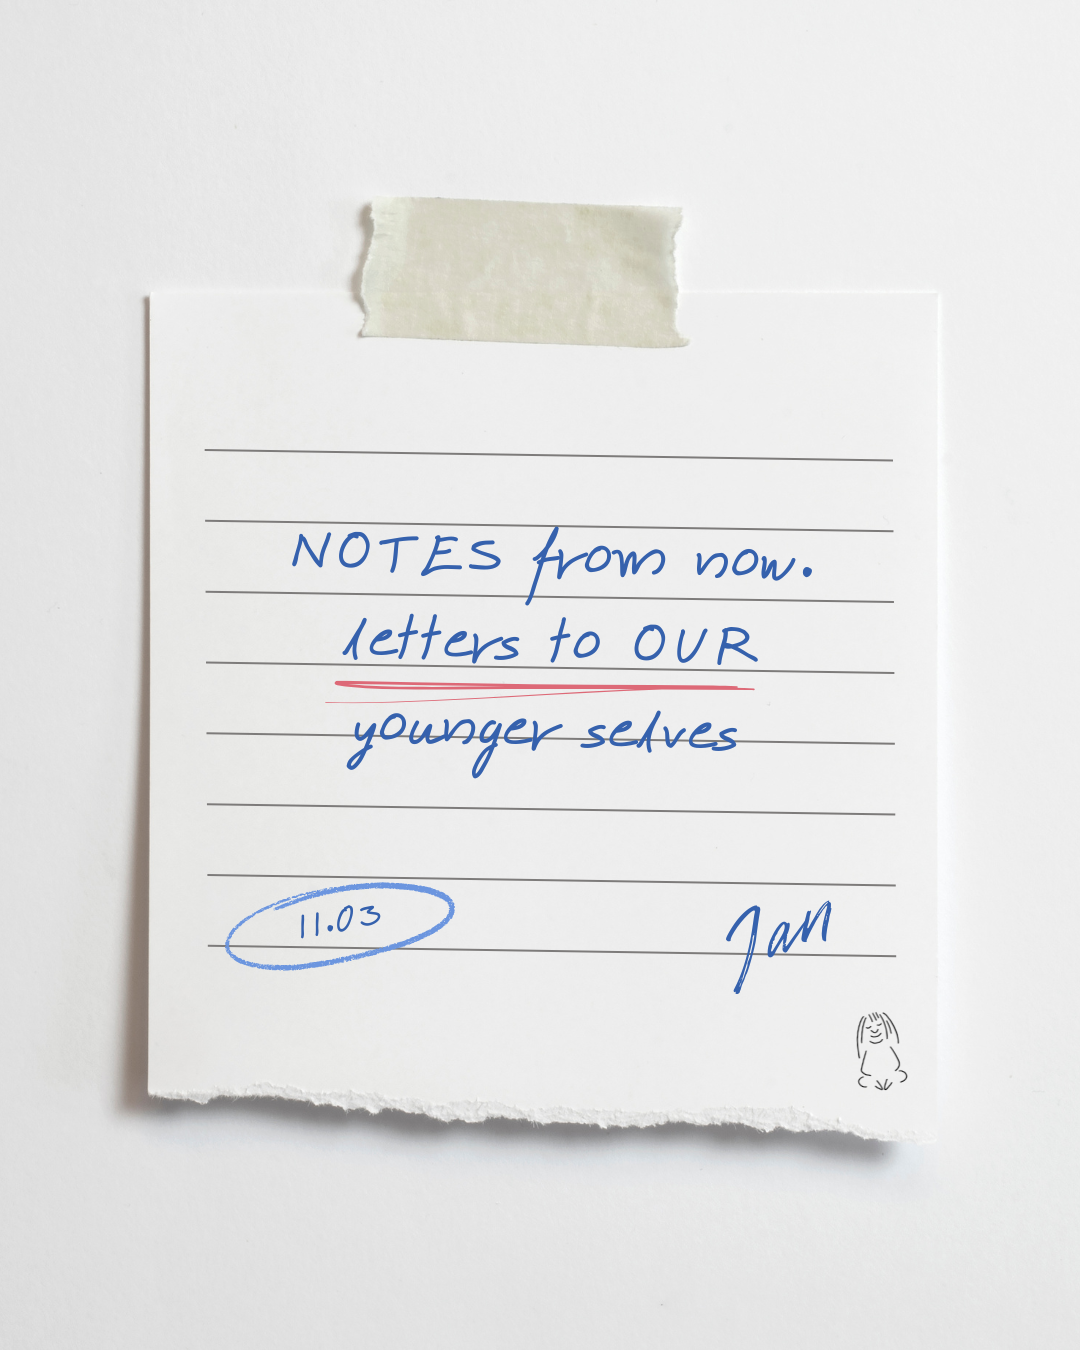 NOTES from now.
letters to OUR
younger selves
11.03
Jan